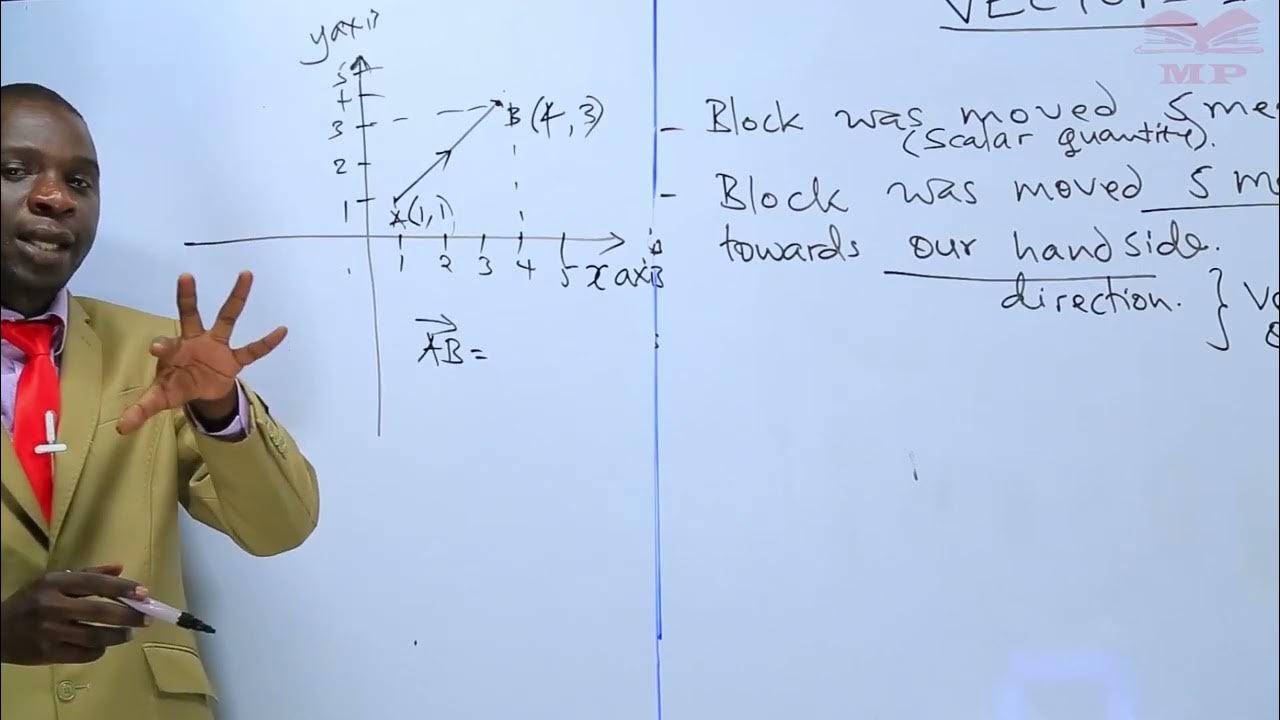 y axis
5
4
3
2
1
B(4,3)
A(1,1)
1 2 3 4 5 x axis
AB =
MP
- Block was moved 5 me
(scalar quantity).
- Block was moved 5 m
towards our hand side.
direction. }